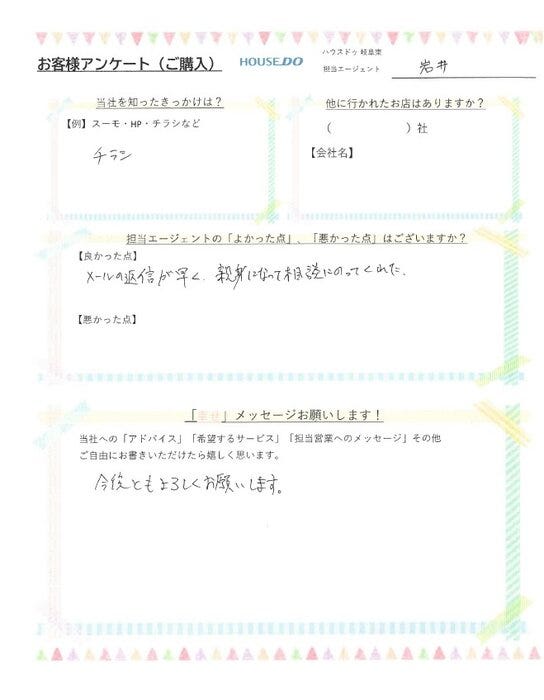 お客様アンケート（ご購入）
HOUSEDO
ハウスドゥ 岐阜東
担当エージェント 岩井
当社を知ったきっかけは？
【例】スーモ・HP・チラシなど
チラシ
他に行かれたお店はありますか？
（ ）社
【会社名】
担当エージェントの「よかった点」、「悪かった点」はございますか？
【良かった点】
メールの返信が早く、親身になって相談にのってくれた。
【悪かった点】
「幸せ」メッセージお願いします！
当社への「アドバイス」「希望するサービス」「担当営業へのメッセージ」その他
ご自由にお書きいただけたら嬉しく思います。
今後ともよろしくお願いします。